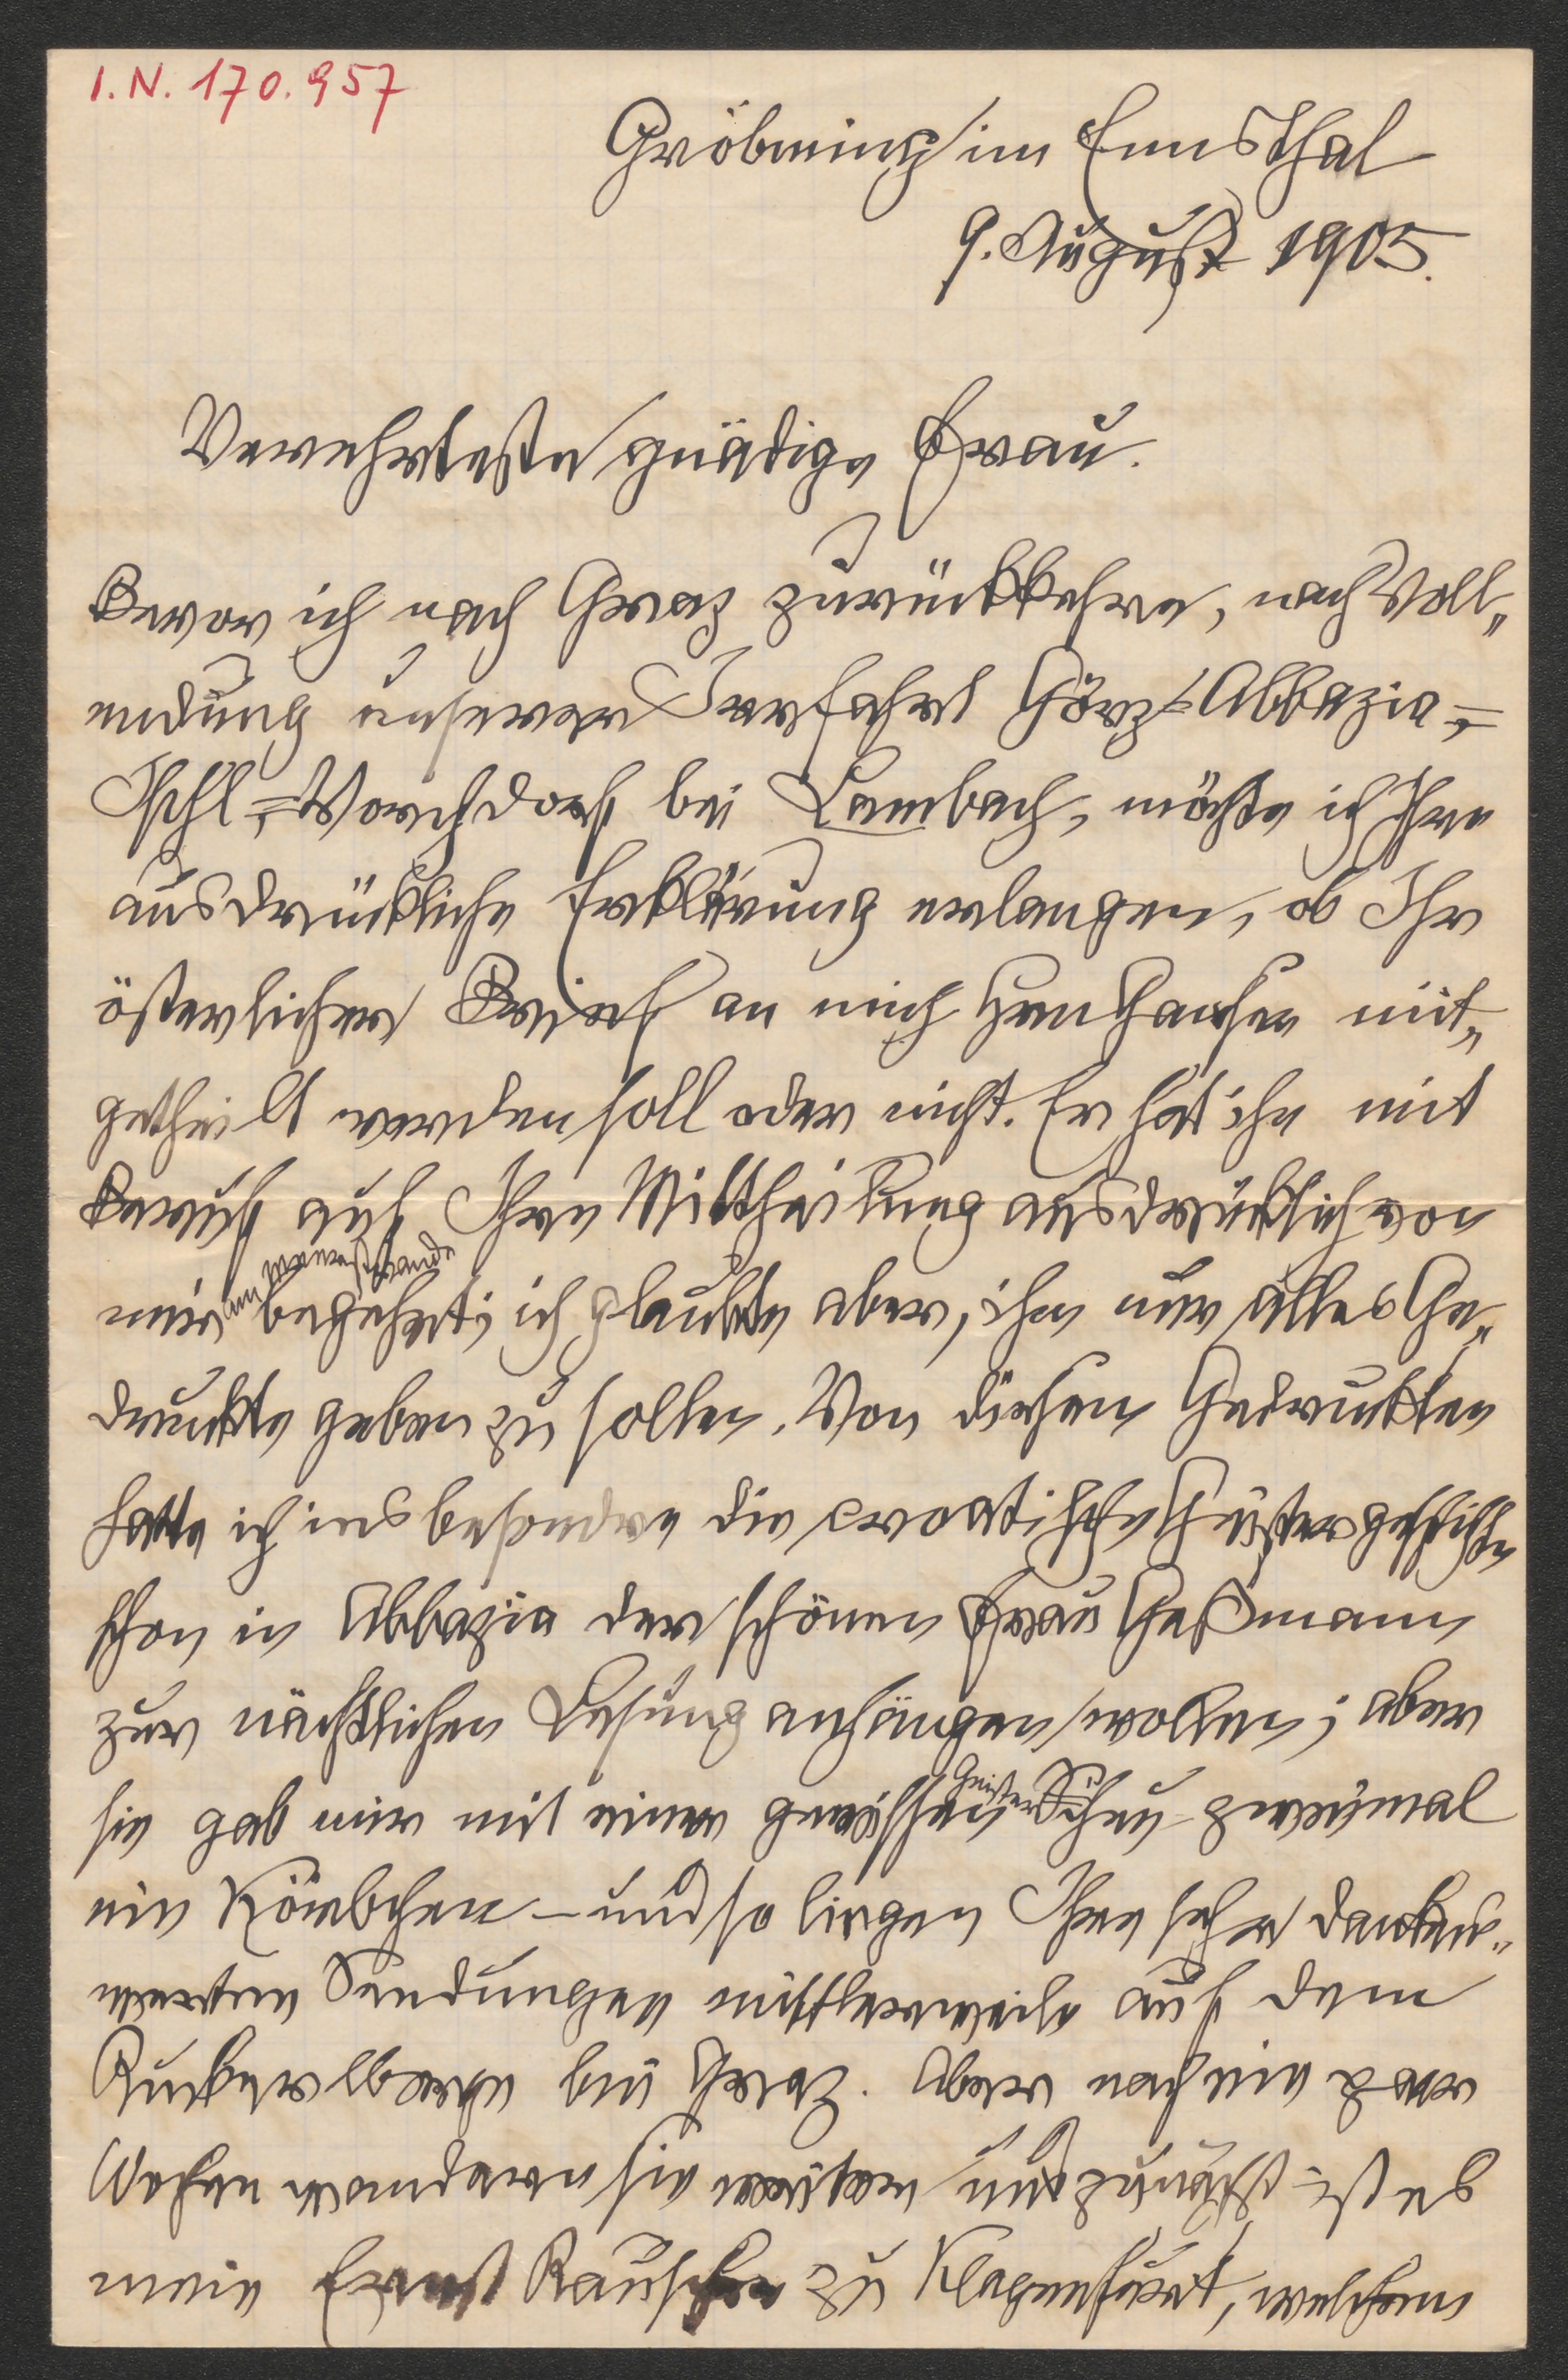 I. N. 170.957
Gröbming im Ennsthal
9. August 1905.
Verehrteste gnädige Frau.
Bevor ich nach Graz zurückkehre, nach Voll„
endung unserer Irrfahrt Görz-Abbazia=
Ischl=Vorchdorf bei Lambach, möchte ich Ihre
ausdrückliche Erklärung verlangen, ob Ihr
österlicher Brief an mich Hans mit„
getheilt werden soll oder nicht. Er hat ihn mit
Beruf auf Ihre Mittheilung ausdrücklich von
mir begehrt; ich glaubte aber, ihm nur alles Ge„
druckte geben zu sollen. Von diesem Gedruckten
hatte ich insbesondre die croatische Geistergeschichte
schon in Abbazia der schönen Frau Geßmann
zur nächtlichen Lesung anhängen wollen; aber
sie gab mir mit einer gewissen Geister Scheu zweimal
ein Körbchen – und so liegen Ihre sehr dankens„
werten Sendungen mittlerweile auf dem
Ruckerlberg bei Graz. Aber nach ein paar
Wochen wandern sie weiter, und zunächst ist es
mein Ernst Rauscher zu Klagenfurt, welchem